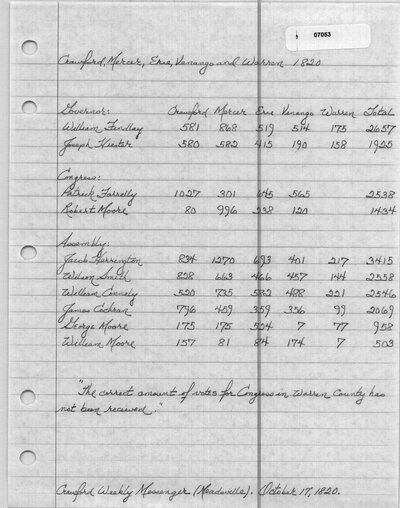 07053
Crawford, Mercer, Erie, Venango and Warren 1820
Governor: Crawford Mercer Erie Venango Warren Total
William Findlay 581 868 519 514 175 2657
Joseph Hiester 580 582 415 190 158 1925
Congress:
Patrick Farrelly 1027 301 645 565 2538
Robert Moore 80 996 238 120 1434
Assembly:
Jacob Herrington 834 1270 693 401 217 3415
Wilson Smith 828 663 466 457 144 2558
William Connely 520 735 582 488 221 2546
James Cochran 796 459 359 356 99 2069
George Moore 175 175 524 7 77 958
William Moore 157 81 84 174 7 503
"The correct amount of votes for Congress in Warren County has
not been received."
Crawford Weekly Messenger (Meadville). October 17, 1820.